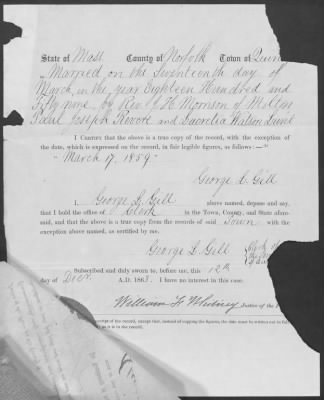 State of Mass County of Norfolk Town of Quin
Married on the Seventeenth day of
March in the year Eighteen Hundred and
Fifty nine by Rev. J. H. Morrison of Milton
Paul Joseph Revere and Lucretia Watson Lunt
I CERTIFY that the above is a true copy of the record, with the exception of
the date, which is expressed on the record, in fair legible figures, as follows:—
"March 17, 1859"
George L. Gill
I, George L. Gill above named, depose and say,
that I hold the office of Clerk in the Town, County, and State afore-
said, and that the above is a true copy from the records of said Town with the
exception above named, as certified by me.
George L. Gill
Subscribed and duly sworn to, before me, this 12th
day of Decr. A.D. 186 . I have no interest in this case.
William H Whitney Justice of the
copy of the record, except that, instead of copying the figures, the date must be written out in full
as it is in the record.